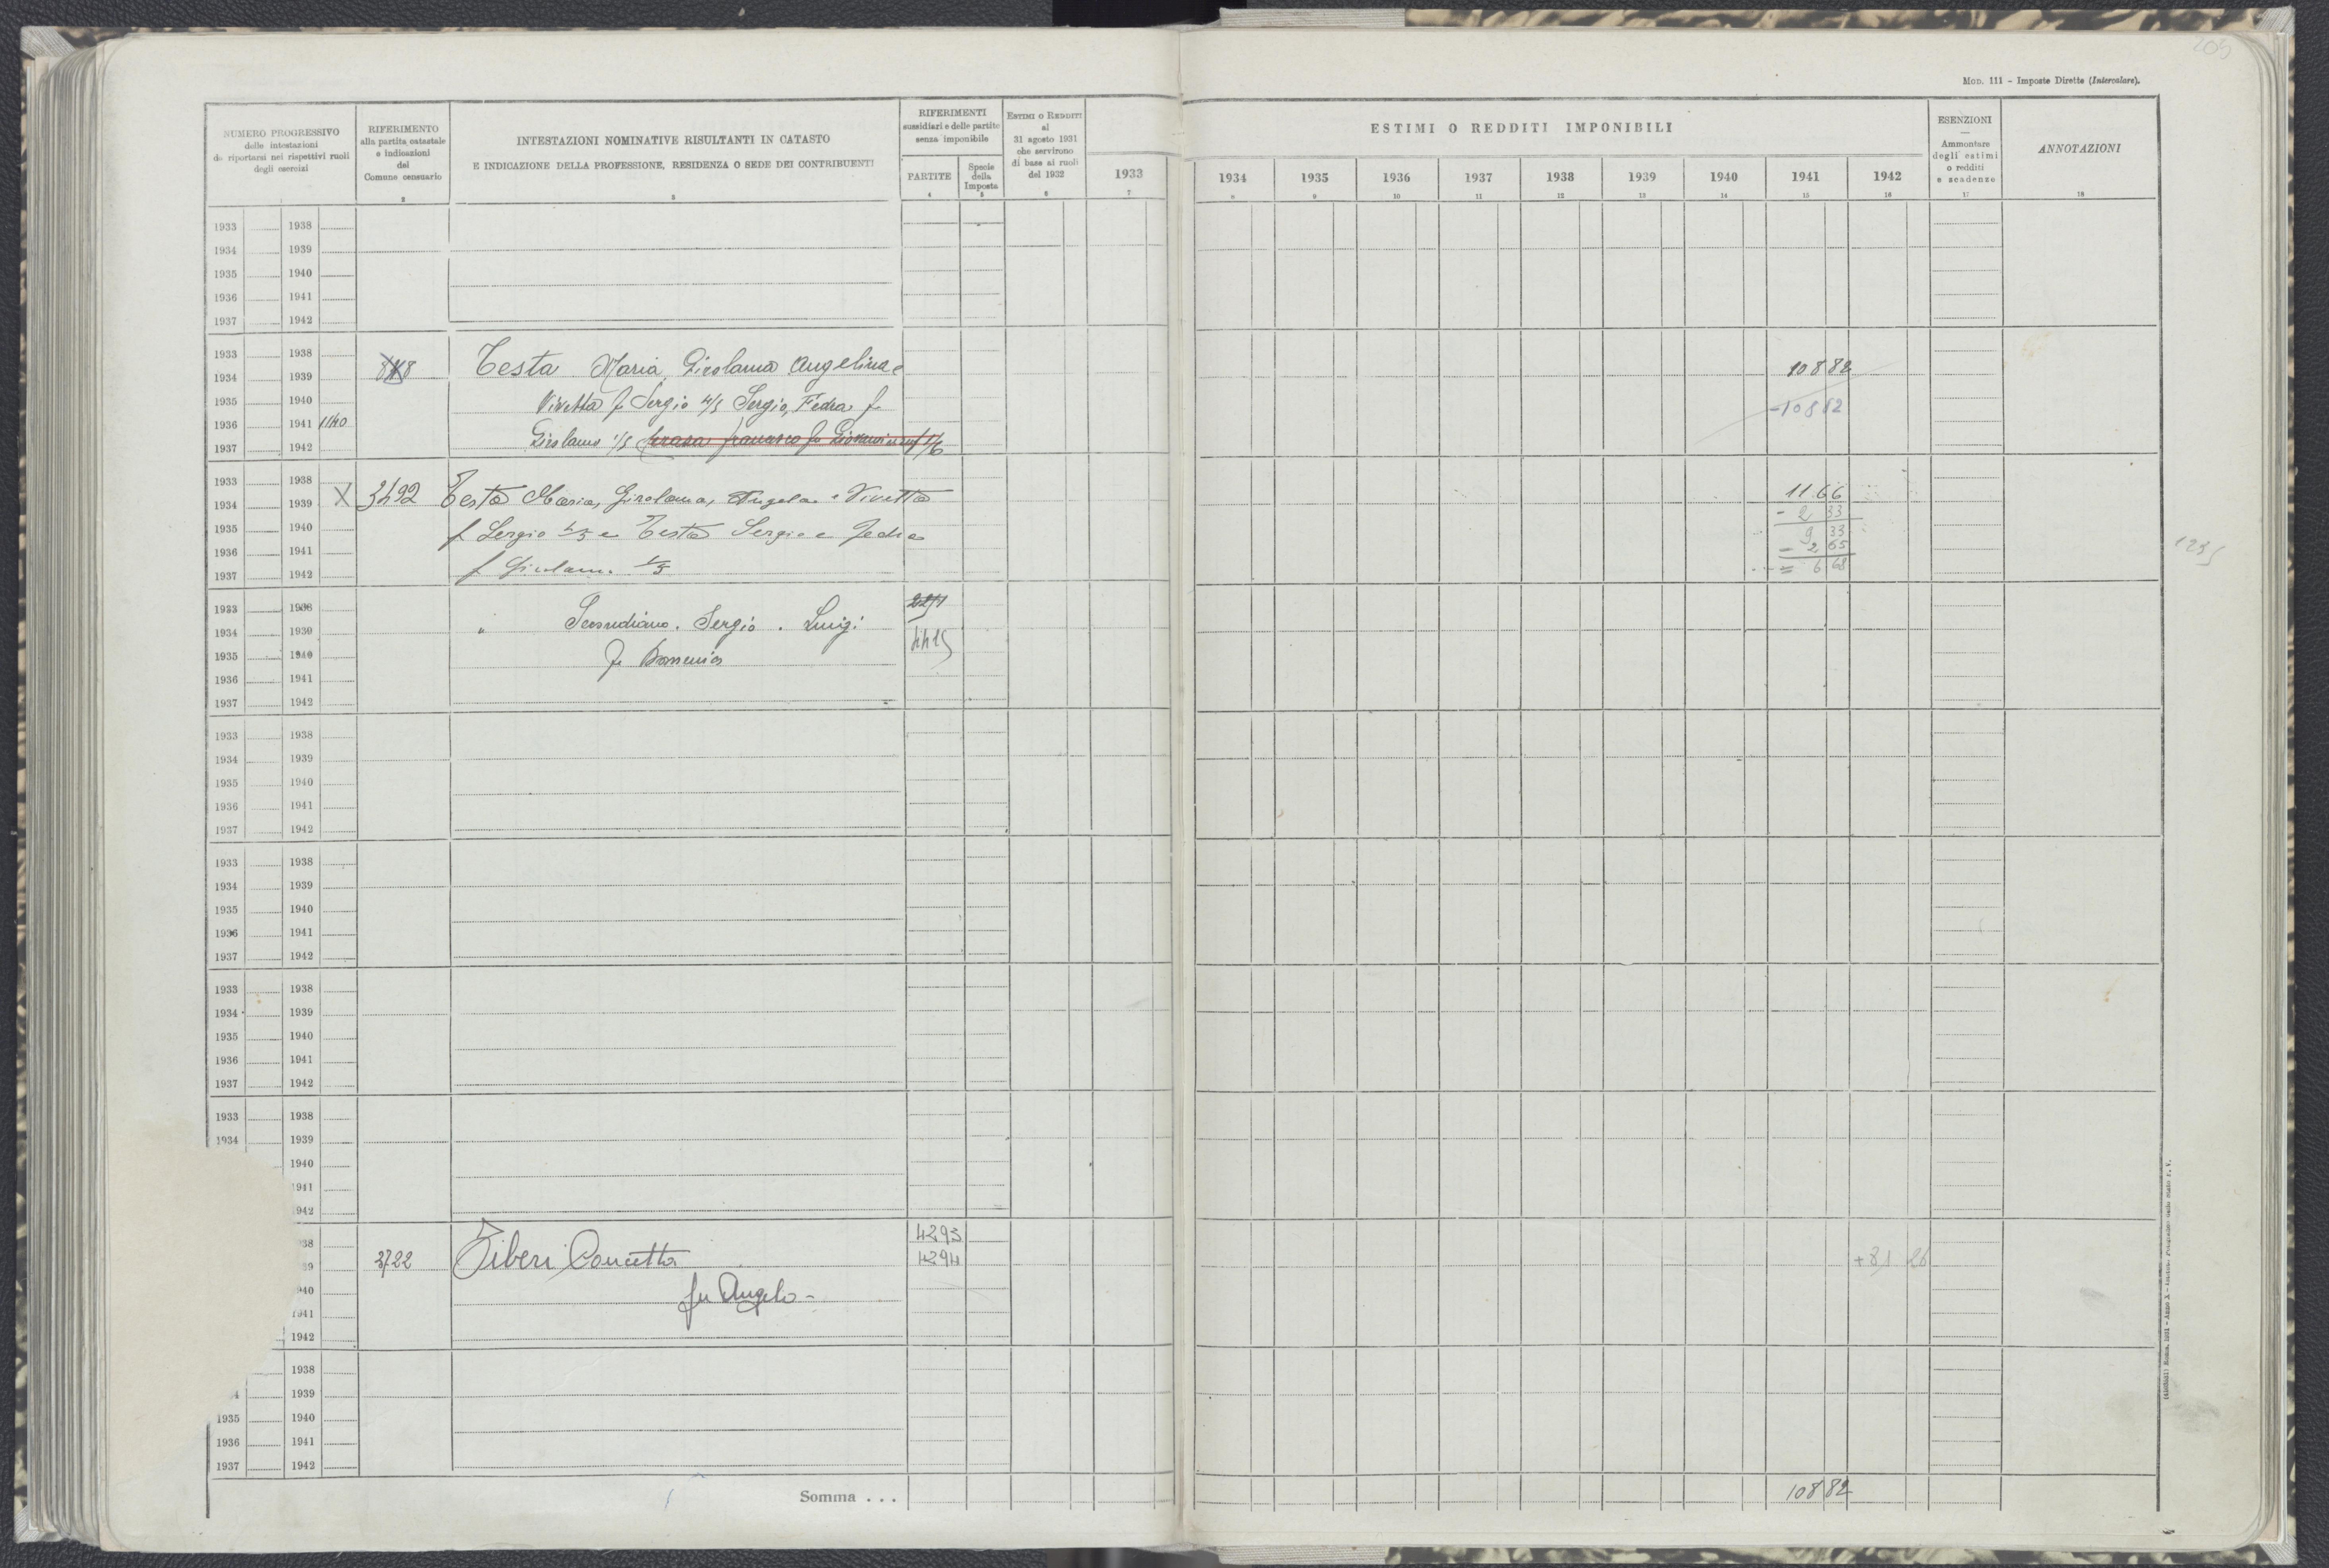 205
MOD. 111 - Imposte Dirette (Intercalare).
NUMERO PROGRESSIVO
delle intestazioni
da riportarsi nei rispettivi ruoli
degli esercizi
RIFERIMENTO
alla partita catastale
e indicazioni
del
Comune censuario
2
INTESTAZIONI NOMINATIVE RISULTANTI IN CATASTO
E INDICAZIONE DELLA PROFESSIONE, RESIDENZA O SEDE DEI CONTRIBUENTI
3
RIFERIMENTI
sussidiari e delle partite
senza imponibile
PARTITE
4
Specie
della
Imposta
5
ESTIMI O REDDITI
al
31 agosto 1931
che servirono
di base ai ruoli
del 1932
6
1933
7
ESTIMI O REDDITI IMPONIBILI
1934 1935 1936 1937 1938 1939 1940 1941 1942
8 9 10 11 12 13 14 15 16
ESENZIONI
Ammontare
degli estimi
o redditi
e scadenze
17
ANNOTAZIONI
18
1933 1938
1934 1939
1935 1940
1936 1941
1937 1942
1933 1938
Testa Maria Girolama Angelina e 108 82
1934 1939
1935 1940
Vivetta f Sergio 4/5 Sergio, Fedra f -108 82
1936 1941 1140
Girolamo 1/5
1937 1942
1933 1938
X 3492 Testa Maria, Girolama, Angela e Vivetta 11 66
1934 1939
- 2 33
1935 1940
f Sergio 4/5 e Testa Sergio e Fedra 9 33
1936 1941
- 2 65
1235
1937 1942
f Girolamo 1/5 = 6 68
1933 1938
1934 1939
" Sergio . Luigi
4415
1935 1940
1936 1941
1937 1942
1933 1938
1934 1939
1935 1940
1936 1941
1937 1942
1933 1938
1934 1939
1935 1940
1936 1941
1937 1942
1933 1938
1934 1939
1935 1940
1936 1941
1937 1942
1933 1938
1934 1939
1940
1941
942
38
4293
3722 Tiberi Concetta 4294
fu Angelo -
1941
1942
1938
1939
1935 1940
1936 1941
1937 1942
Somma . . . 108 82